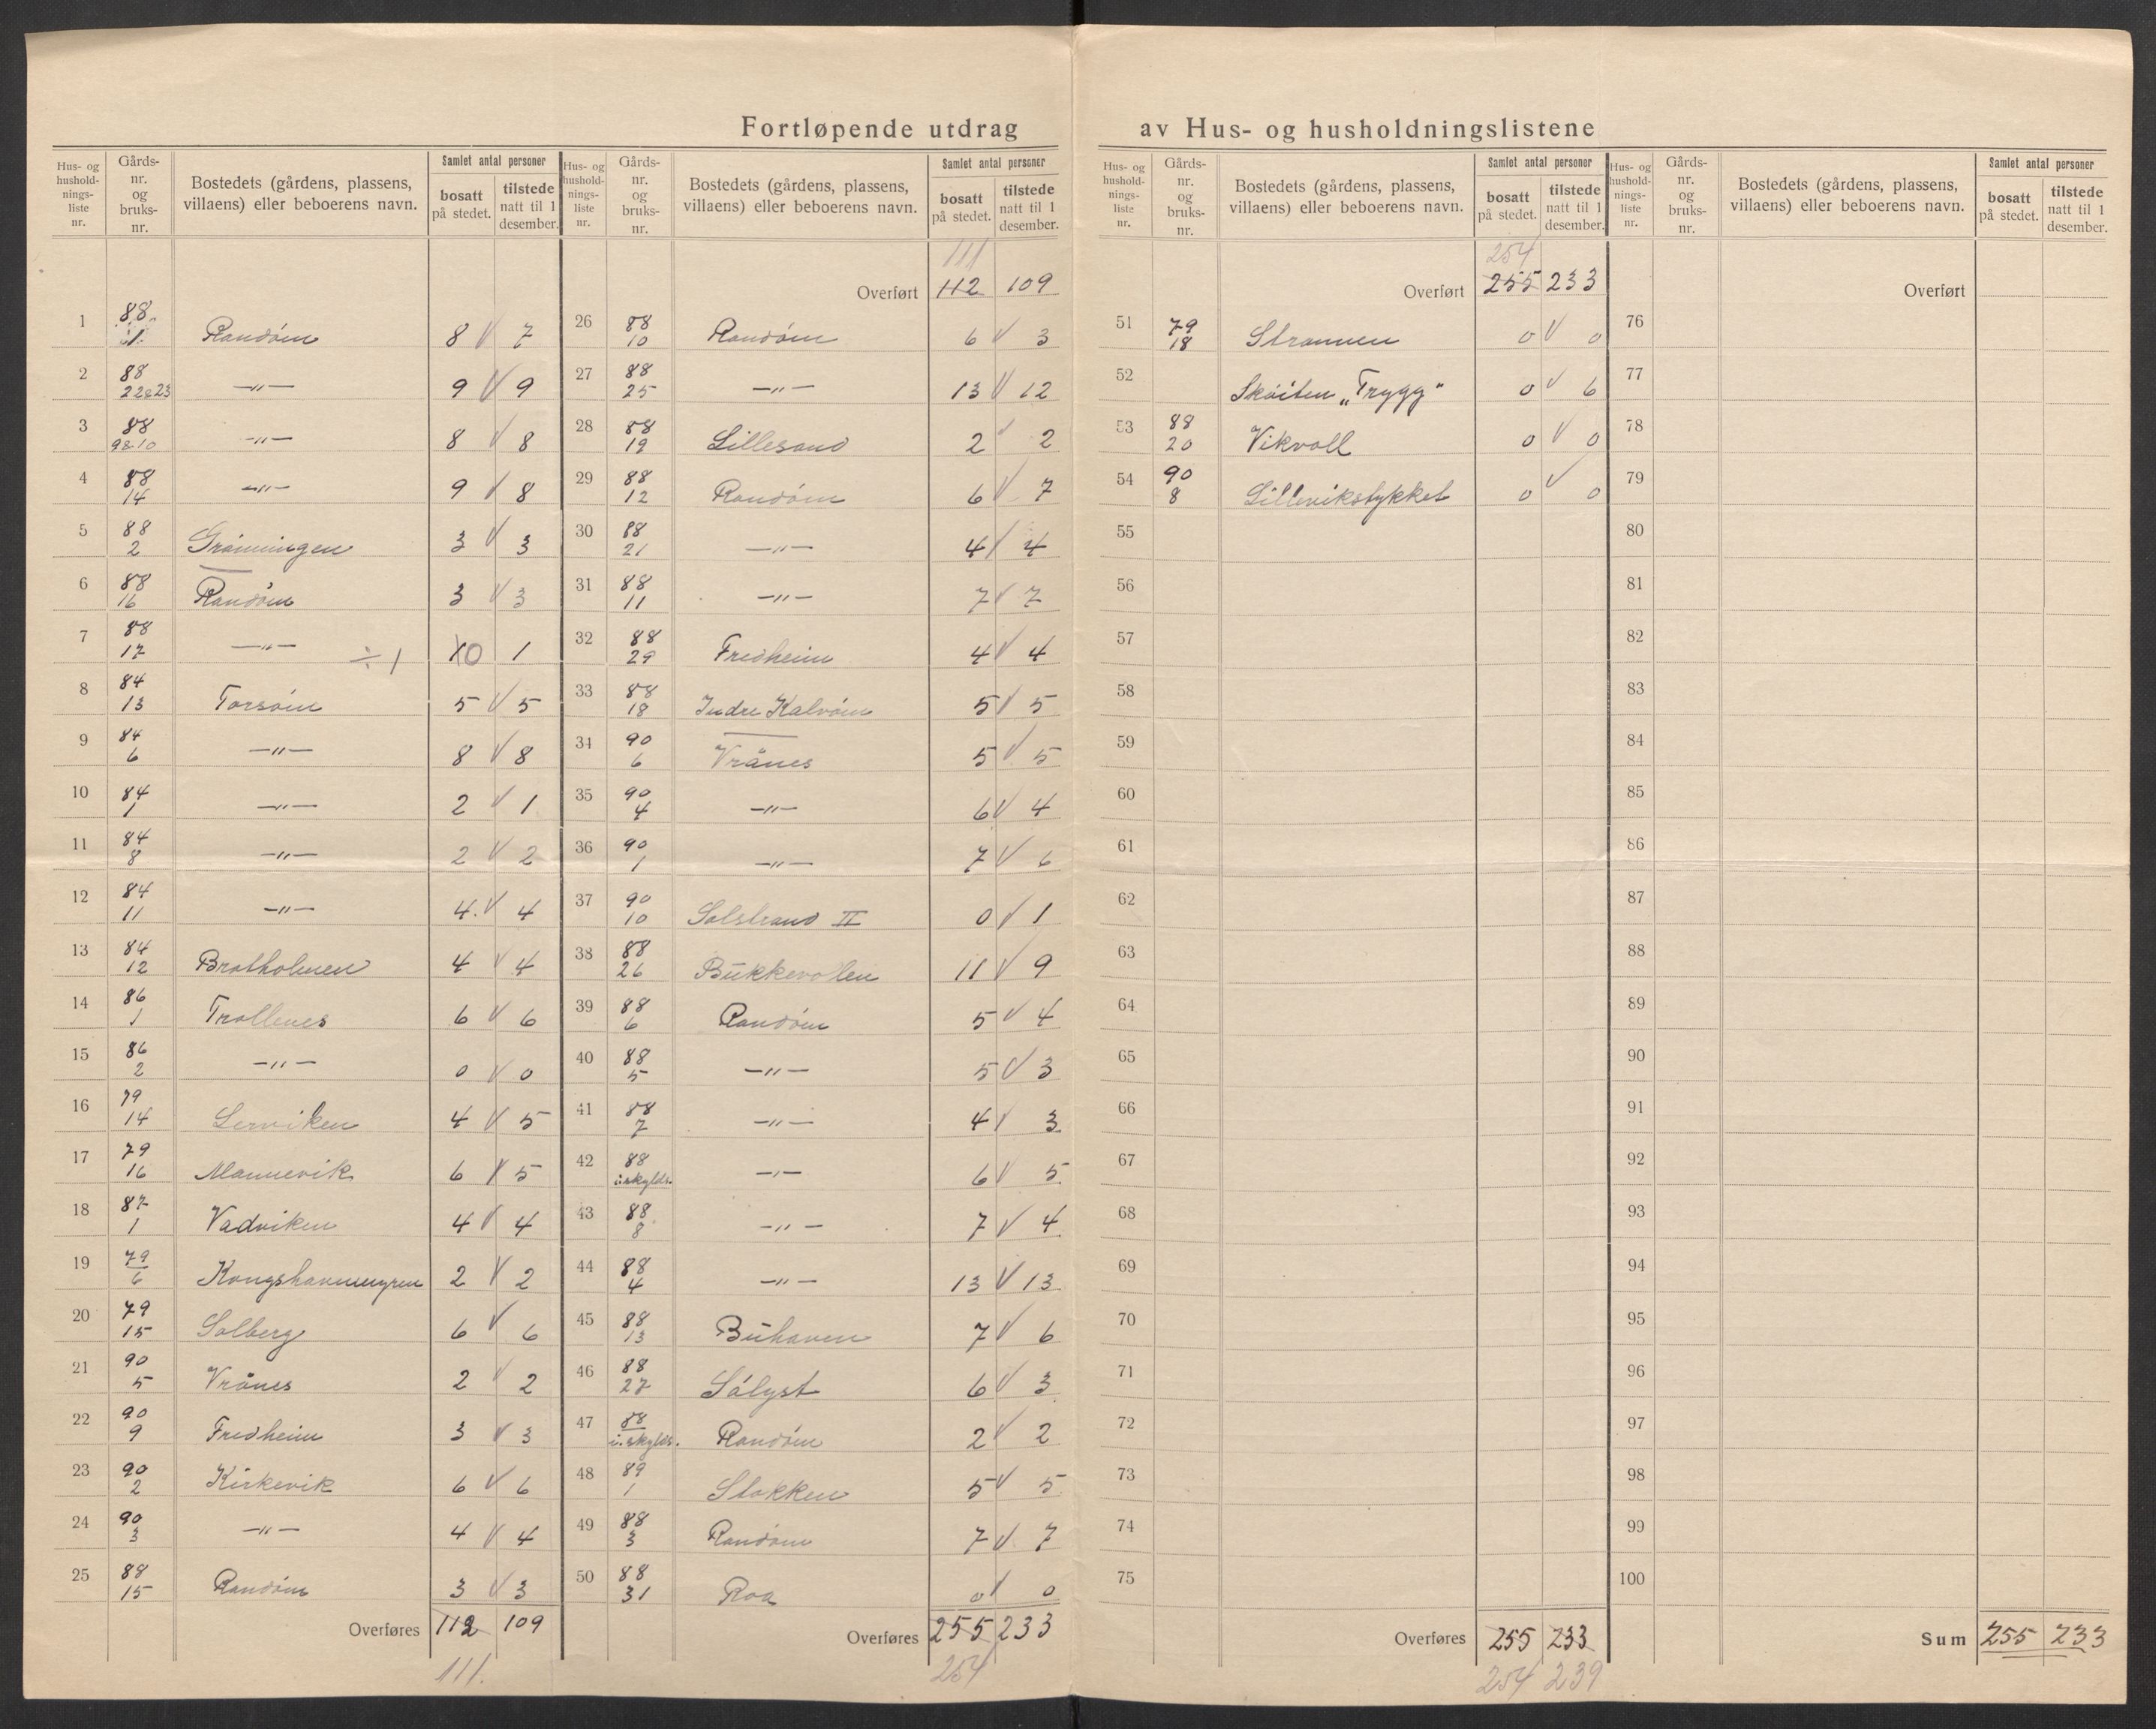 Fortløpende utdrag av Hus- og husholdningslistene
Hus- og husholdnings-liste nr. Gårds-nr. og bruks-nr. Bostedets (gårdens, plassens, villaens) eller beboerens navn. Samlet antal personer bosatt på stedet. tilstede natt til 1 desember.
1 88 1 Randöin 8 V 7
2 88 22&23 —"— 9 V 9
3 88 9&10 —"— 8 V 8
4 88 14 —"— 9 V 8
5 88 2 Gröinningen 3 V 3
6 88 16 Randöin 3 V 3
7 88 17 —"— ÷1 0 1
8 84 13 Torsöin 5 V 5
9 84 6 —"— 8 V 8
10 84 1 —"— 2 V 1
11 84 8 —"— 2 V 2
12 84 11 —"— 4 V 4
13 84 12 Bratholmen 4 V 4
14 86 1 Trollenes 6 V 6
15 86 2 —"— 0 V 0
16 79 14 Lerviken 4 V 5
17 79 16 Mannevik 6 V 5
18 87 1 Vadviken 4 V 4
19 79 6 2 V 2
20 79 15 Solberg 6 V 6
21 90 5 Vrånes 2 V 2
22 90 9 Fredheim 3 V 3
23 90 2 Kirkevik 6 V 6
24 90 3 —"— 4 V 4
25 88 15 Randöin 3 V 3
Overføres 112 109
111.
Hus- og husholdnings-liste nr. Gårds-nr. og bruks-nr. Bostedets (gårdens, plassens, villaens) eller beboerens navn. Samlet antal personer bosatt på stedet. tilstede natt til 1 desember.
111
Overført 112 109
26 88 10 Randöin 6 V 3
27 88 25 —"— 13 V 12
28 88 19 Lillesand 2 V 2
29 88 12 Randöin 6 V 7
30 88 21 —"— 4 V 4
31 88 11 —"— 7 V 7
32 88 29 Fredheim 4 V 4
33 88 18 Indre Kalvöin 5 V 5
34 90 6 Vrånes 5 V 5
35 90 4 —"— 6 V 4
36 90 1 —"— 7 V 6
37 90 10 Solstrand II 0 V 1
38 88 26 Bukkevolen 11 V 9
39 88 6 Randöin 5 V 4
40 88 5 —"— 5 V 3
41 88 7 —"— 4 V 3
42 88 i.skylds. —"— 6 V 5
43 88 8 —"— 7 V 4
44 88 4 —"— 13 V 13
45 88 13 Buhaven 7 V 6
46 88 27 Sólyst 6 V 3
47 88 i.skylds. Randöin 2 V 2
48 89 1 Stokken 5 V 5
49 88 3 Randöin 7 V 7
50 88 31 Roa 0 V 0
Overføres 255 233
254
Hus- og husholdnings-liste nr. Gårds-nr. og bruks-nr. Bostedets (gårdens, plassens, villaens) eller beboerens navn. Samlet antal personer bosatt på stedet. tilstede natt til 1 desember.
254
Overført 255 233
51 79 18 Strannen 0 V 0
52 Sköiten „Trygg" 0 V 6
53 88 20 Vikvoll 0 V 0
54 90 8 Lillevikstykket 0 V 0
55
56
57
58
59
60
61
62
63
64
65
66
67
68
69
70
71
72
73
74
75
Overføres 255 233
254 239
Hus- og husholdnings-liste nr. Gårds-nr. og bruks-nr. Bostedets (gårdens, plassens, villaens) eller beboerens navn. Samlet antal personer bosatt på stedet. tilstede natt til 1 desember.
Overført
76
77
78
79
80
81
82
83
84
85
86
87
88
89
90
91
92
93
94
95
96
97
98
99
100
Sum 255 233